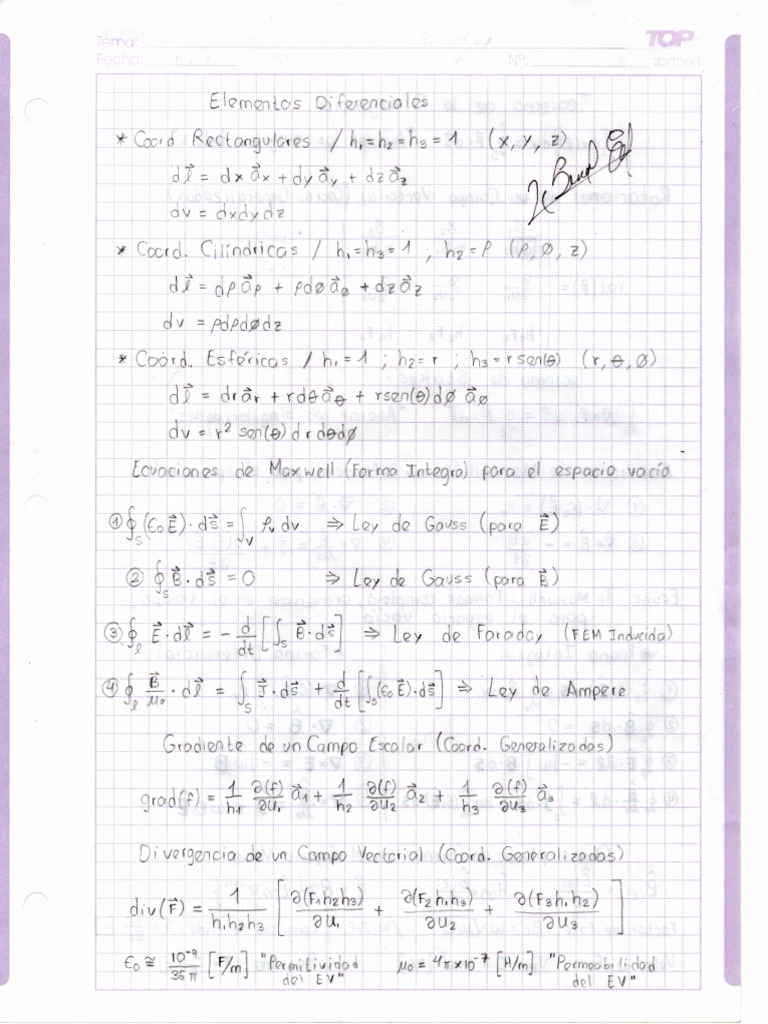 Tema: TOP
Fecha: Nº:
Elementos Diferenciales
* Coord Rectangulares / h₁=h₂=h₃=1 (x, y, z)
dl⃗ = dx a⃗x + dy a⃗y + dz a⃗z
dv = dxdydz
* Coord. Cilíndricas / h₁=h₃=1 ; h₂=ρ (ρ, ø, z)
dl⃗ = dρ a⃗ρ + ρdø a⃗ø + dz a⃗z
dv = ρdρdødz
* Coord. Esféricas / h₁=1 ; h₂=r ; h₃=r sen(θ) (r, θ, ø)
dl⃗ = dr a⃗r + rdθ a⃗θ + rsen(θ)dø a⃗ø
dv = r² sen(θ) dr dθdø
Ecuaciones de Maxwell (Forma Integra) para el espacio vacío
① ∮s (ε₀E⃗)·ds⃗ = ∫v ρv dv ⇒ Ley de Gauss (para E⃗)
② ∮s B⃗·ds⃗ = 0 ⇒ Ley de Gauss (para B⃗)
③ ∮l E⃗·dl⃗ = - d/dt [∫s B⃗·ds⃗] ⇒ Ley de Faraday (FEM Inducida)
④ ∮l B⃗/μ₀ · dl⃗ = ∫s J⃗·ds⃗ + d/dt [∫s (ε₀E⃗)·ds⃗] ⇒ Ley de Ampere
Gradiente de un Campo Escalar (Coord. Generalizadas)
grad(f) = 1/h₁ ∂(f)/∂u₁ a⃗₁ + 1/h₂ ∂(f)/∂u₂ a⃗₂ + 1/h₃ ∂(f)/∂u₃ a⃗₃
Divergencia de un Campo Vectorial (Coord. Generalizadas)
div(F⃗) = 1/h₁h₂h₃ [ ∂(F₁h₂h₃)/∂u₁ + ∂(F₂h₁h₃)/∂u₂ + ∂(F₃h₁h₂)/∂u₃ ]
ε₀ ≅ 10⁻⁹/36π [F/m] "Permitividad del EV" μ₀ = 4π×10⁻⁷ [H/m] "Permeabilidad del EV"